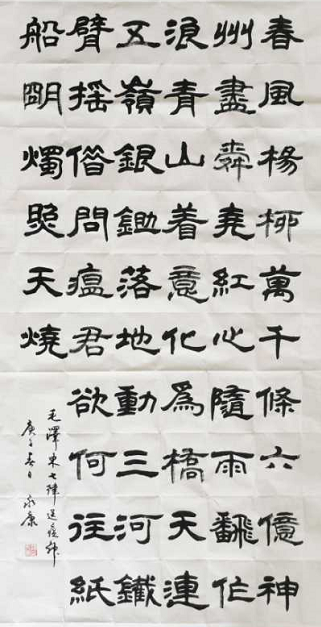 春風楊柳萬千條六億神
州盡舜堯紅心隨雨飜作
浪青山着意化為橋天連
五嶺銀鋤落地動三河鐵
臂摇借問瘟君欲何往紙
船明燭照天燒
毛澤東七律送瘟神
庚子春日 永康